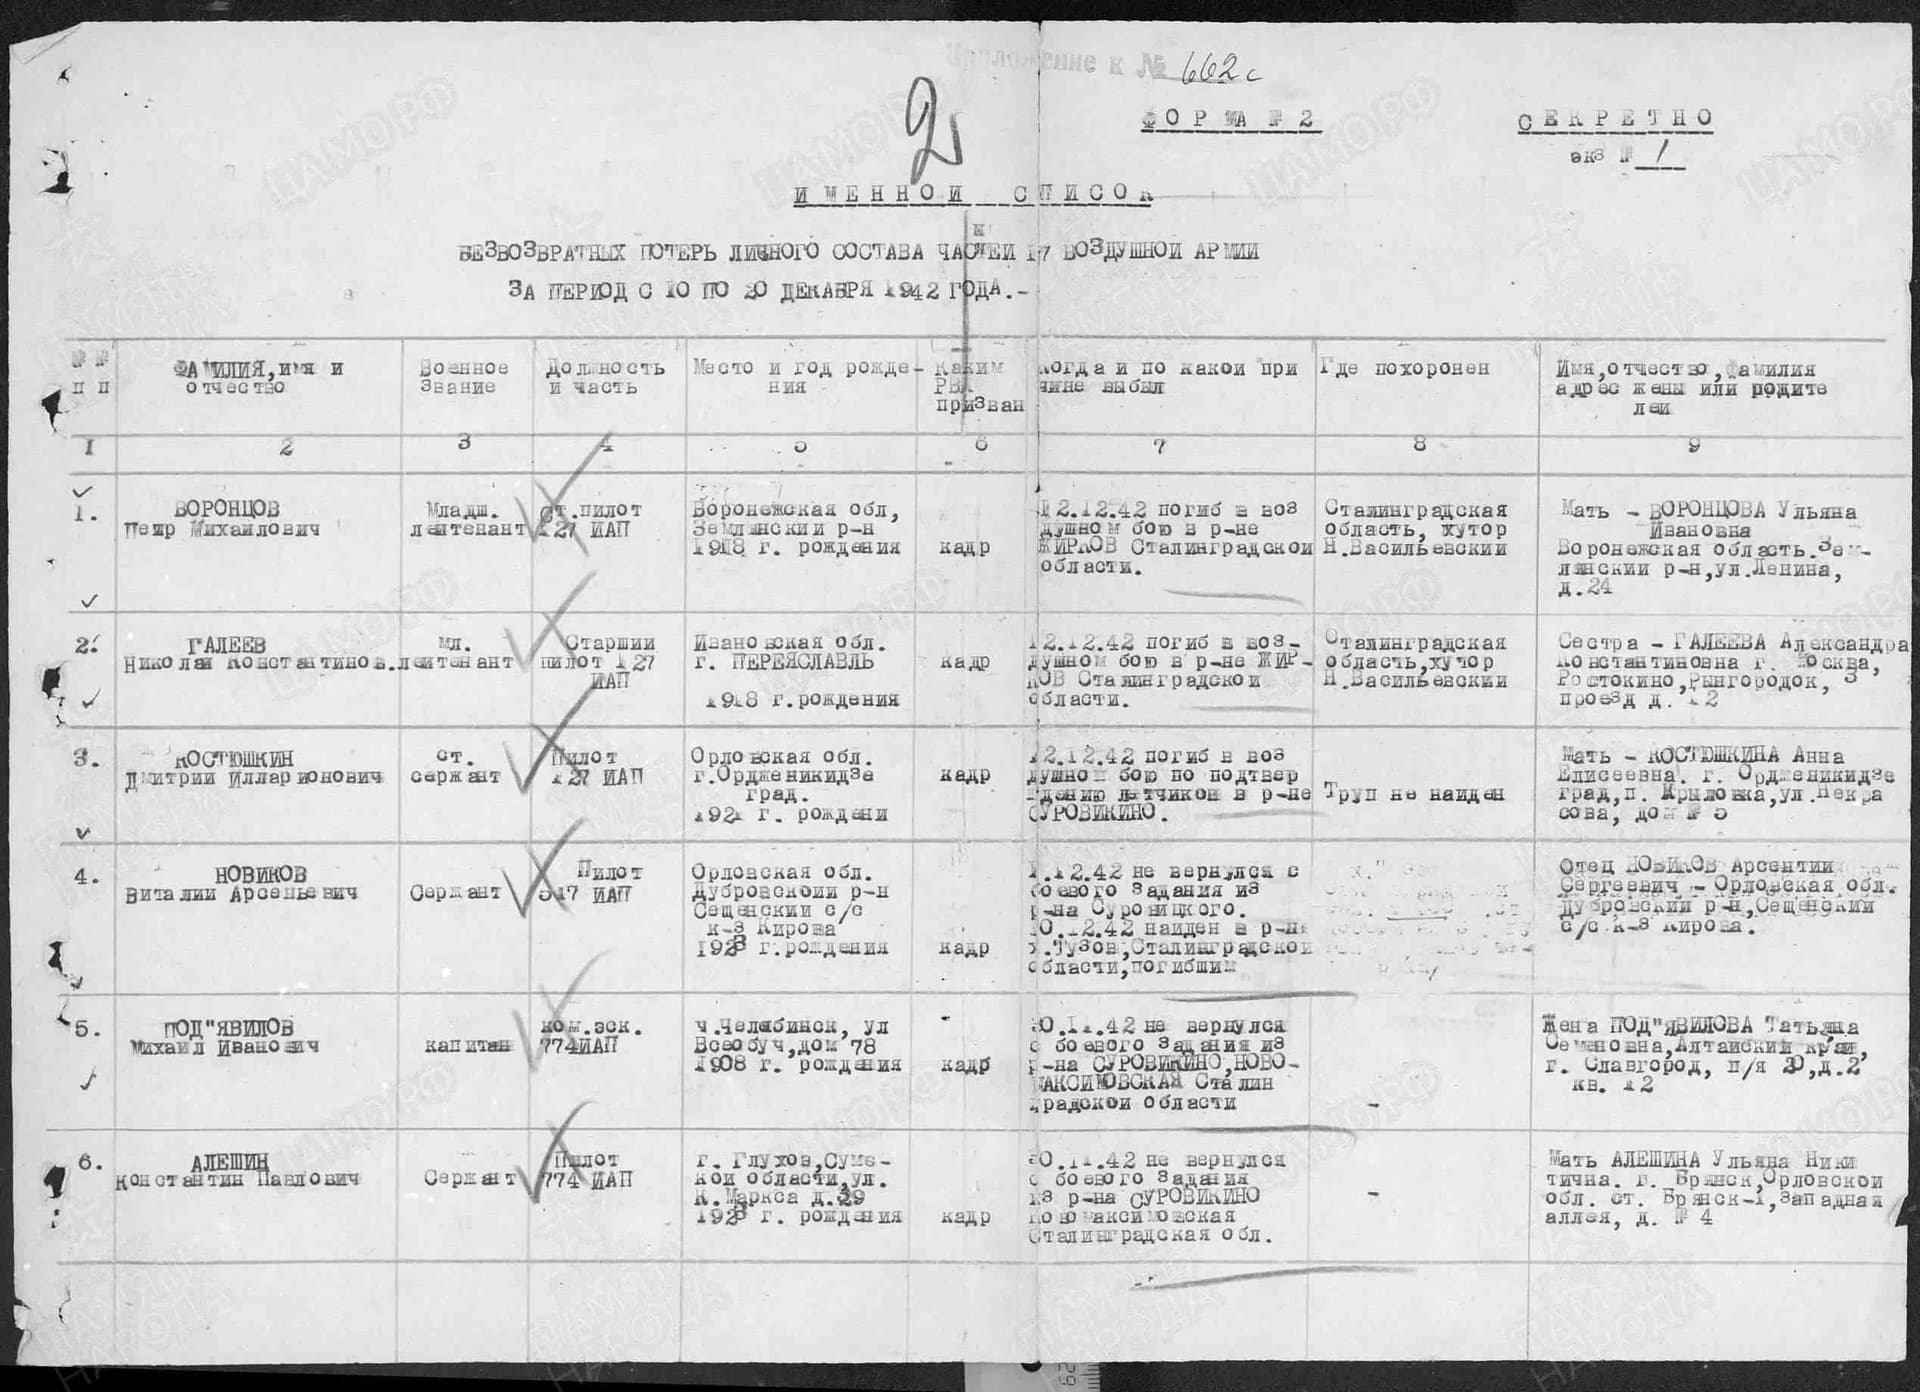 Приложение к № 662с
2
ФОРМА № 2
СЕКРЕТНО
экз № 1
ИМЕННОЙ СПИСОК
БЕЗВОЗВРАТНЫХ ПОТЕРЬ ЛИЧНОГО СОСТАВА ЧАСТЕЙ 17 ВОЗДУШНОЙ АРМИИ
ЗА ПЕРИОД С 10 ПО 20 ДЕКАБРЯ 1942 ГОДА.-
№№ п п
ФАМИЛИЯ, имя и
отчество
Военное
Звание
Должность
и часть
Место и год рожде-
ния
Каким
РВК
призван
Когда и по какой при
чине выбыл
Где похоронен
Имя, отчество, фамилия
адрес жены или родите
лей
1 2 3 4 5 6 7 8 9
1.
ВОРОНЦОВ
Петр Михайлович
Младш.
лейтенант
ст. пилот
127 ИАП
Воронежская обл,
Землянский р-н
1918 г. рождения
кадр
12.12.42 погиб в воз
душном бою в р-не
ЖИРКОВ Сталинградской
области.
Сталинградская
область, хутор
Н.Васильевский
Мать - ВОРОНЦОВА Ульяна
Ивановна
Воронежская область. Зем-
лянский р-н, ул. Ленина,
д. 24
2.
ГАЛЕЕВ
Николай Константинов.
мл.
лейтенант
Старший
пилот 127
ИАП
Ивановская обл.
г. ПЕРЕЯСЛАВЛЬ
1918 г. рождения
кадр
12.12.42 погиб в воз-
душном бою в р-не ЖИР-
КОВ Сталинградской
области.
Сталинградская
область, хутор
Н.Васильевский
Сестра - ГАЛЕЕВА Александра
Константиновна г. Москва,
Ростокино, Рынгородок, 3
проезд д. 12
3.
КОСТЮШКИН
Дмитрий Илларионович
ст.
сержант
Пилот
127 ИАП
Орловская обл.
г. Орджоникидзе
град.
1921 г. рождени
кадр
12.12.42 погиб в воз
душном бою по подтвер
ждению летчиков в р-не
СУРОВИКИНО.
Труп не найден
Мать - КОСТЮШКИНА Анна
Елисеевна. г. Орджоникидзе
град, п. Крыловка, ул. Некра
сова, дом № 5
4.
НОВИКОВ
Виталий Арсеньевич
Сержант
Пилот
517 ИАП
Орловская обл.
Дубровской р-н
Сещенский с/с
к-з Кирова
1923 г. рождения
кадр
1.12.42 не вернулся с
боевого задания из
р-на Суровицкого.
10.12.42 найден в р-не
х. Тузов, Сталинградской
области, погибшим
Отец НОВИКОВ Арсентий
Сергеевич - Орловская обл.
Дубровский р-н, Сещенский
с/с к-з Кирова.
5.
ПОД"ЯВИЛОВ
Михаил Иванович
капитан
ком. эск.
774ИАП
ч. Челябинск, ул
Всеобуч, дом 78
1908 г. рождения
кадр
30.11.42 не вернулся
с боевого задания из
р-на СУРОВИКИНО, НОВО-
МАКСИМОВСКАЯ Сталин
градской области
-
Жена ПОД"ЯВИЛОВА Татьяна
Семеновна, Алтайский край,
г. Славгород, п/я 20, д. 2
кв. 12
6.
АЛЕШИН
Константин Павлович
Сержант
Пилот
774 ИАП
г. Глухов, Сумс-
кой области, ул.
К. Маркса д. 39
1923 г. рождения
кадр
30.11.42 не вернулся
с боевого задания
из р-на СУРОВИКИНО
Новомаксимовская
Сталинградская обл.
-
Мать АЛЕШИНА Ульяна Ники
тична. г. Брянск, Орловской
обл. ст. Брянск-1, Западная
аллея, д. № 4